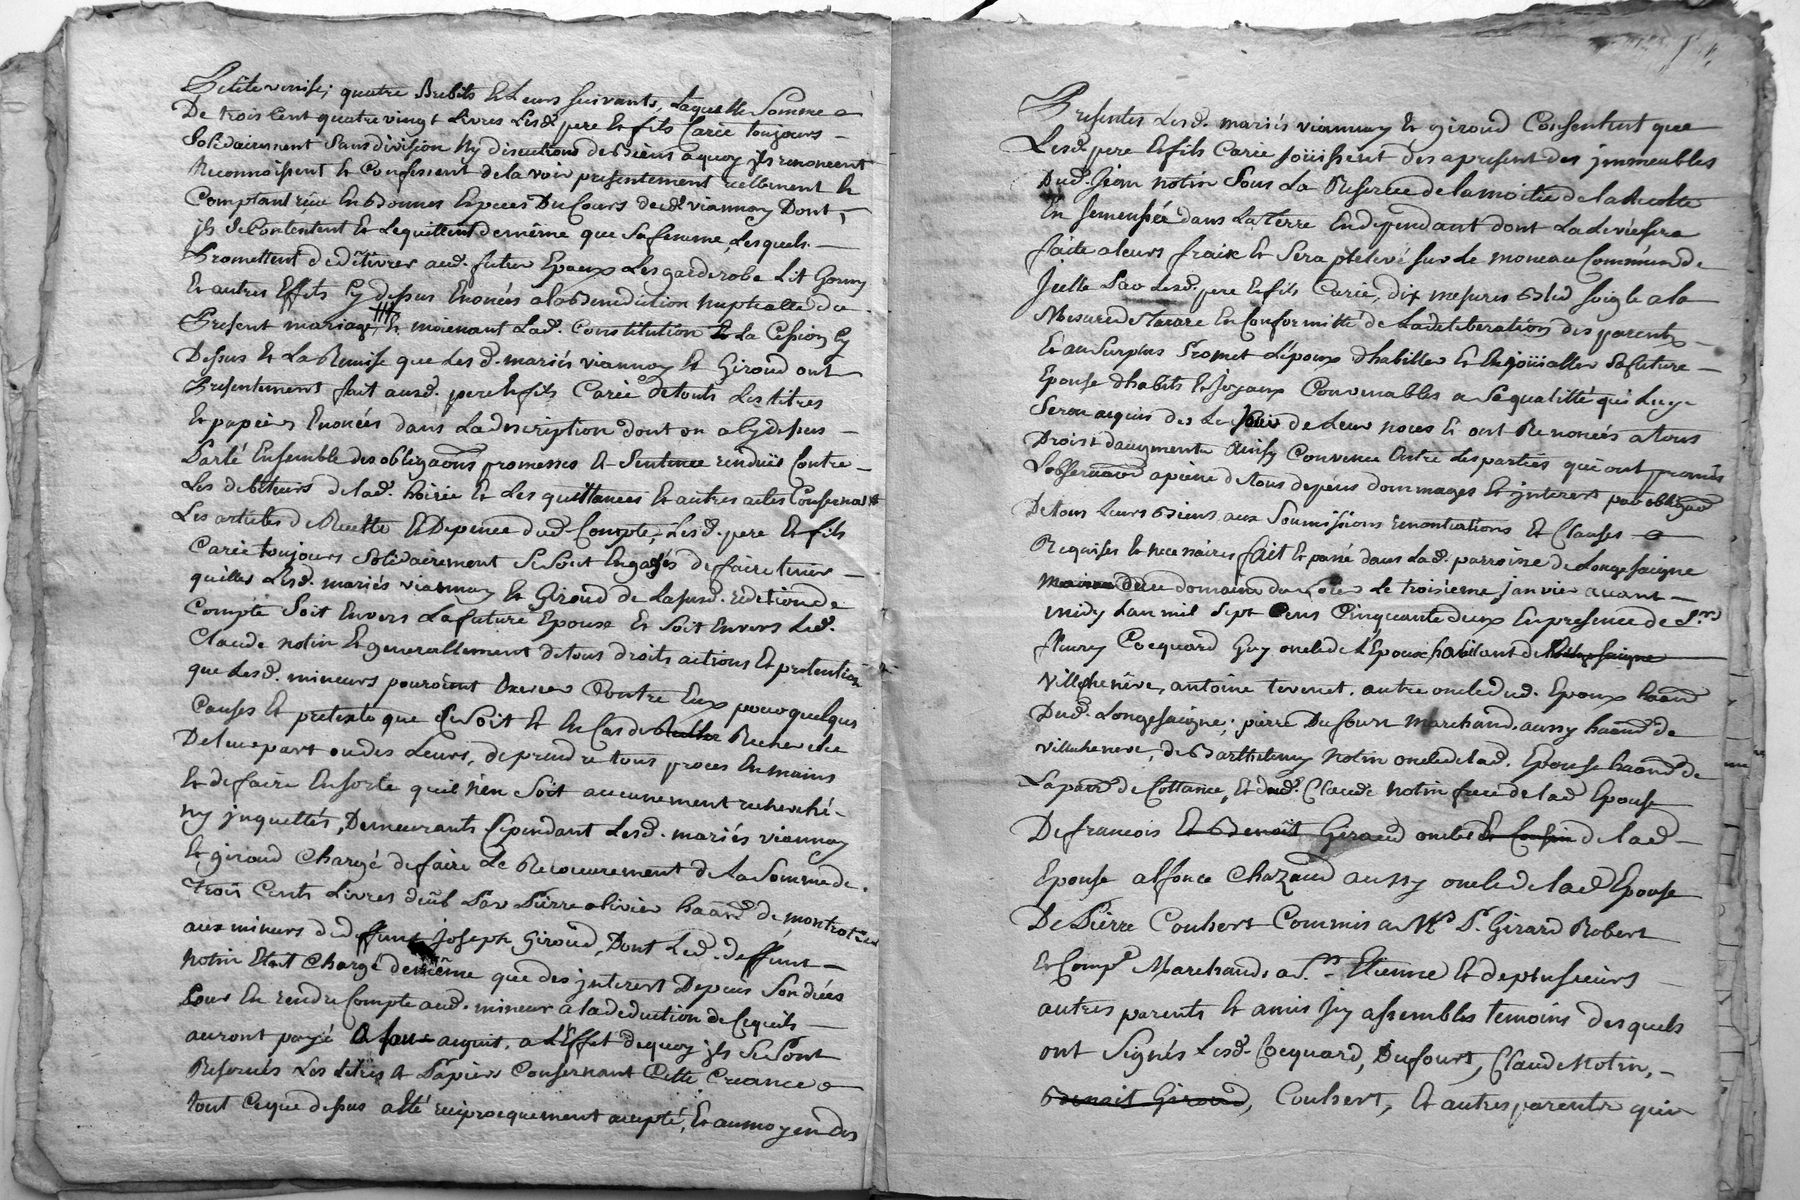 Petite vinise; quatre Brebits et Leurs suivants, Laquelle Somme
De trois Cent quatre vingt Livres Lesd. pere et fils Carie toujours
Solidairement Sans division Ny discution de biens aquoy ils renoncent
Reconnoissent et Confessent de la voir presentement reellement et
Comptant reçu En bonnes Especes Du Cours dud. viannay Dont
ils se Contentent et Lequittent de même que sa femme, Lesquels
Promettent de délivrer aud. futur Epoux Les garderobe Lit Garny
et autres Effets Cy dessus Enoncés a la Benediction nuptialle du
Present mariage, et moienant Lad. Constitution et La Cession Cy
Dessus et La Remise que Les d. mariés viannay et Giroud ont
Presentement fait ausd. pere et fils Carie de touts Les titres
et papiers Enoncés dans La description dont on a Cy dessus
Parlé Ensemble des obligaons promesses et Sentence renduë Contre
Les debiteurs de lad. hoirie et Les quittances et autres actes Consernants
Les articles de Recette et Depence dud. Compte, Lesd. pere et fils
Carie toujours Solidairement Se Sont Engagés de faire tenir
quittes Lesd. mariés viannay et Giroud de La susd. redition de
Compte Soit Envers La future Epouse et Soit Envers Led.
Claude notin et generallement de tous droits actions et pretention
que Lesd. mineurs pouroient Exercer Contre Eux pour quelques
Causes et pretexte que Ce Soit et En Cas de Recherche
De leur part ou des Leurs, de prendre tous proces En mains
et de faire En sorte quil n'en Soit aucunement recherché
ny inquettés, Demeurants Cependant Lesd. mariés viannay
et giroud Chargé de faire Le Recouvrement de La Somme de
trois Cents Livres deüb Par Pierre olivier haand de montrotier
aux mineurs de deffunt Joseph Giroud, Dont Led. deffunt
notin Etoit Chargé de même que des interest Depuis
Pour En rendre Compte aud. mineur a la deduction de Ce quils
auront payé a acquit, a L'Effet de quoy ils Se Sont
Reservés Les titres et Papiers Consernant Cette Creance
tout Ce que dessus a Eté reciprocquement accepté, Et au moyen des
Presentes Lesd. mariés viannay et giroud Consentent que
Lesd. pere et fils Carie joüissent des apresent des immeubles
Dud. Jean notin Sous La Reserve de la moitié de la Recolte
En semensée dans La terre En dependant dont La Levée sera
faite a leurs fraix et Sera prelevé sur Le monceau Commun de
Julle Par Lesd. pere et fils Carie, dix mesures bled soigle a la
Mesure de tarare En Conformitté de La deliberation des parents
Et au Surplus Promet L'époux d'habiller et Enjoüailler Sa future
Epouse d'habits et joyaux Convenables a Sa qualitté qui Luy
Seron acquis des Le jour de Leur noces et ont Renoncés a tous
Droist daugments Ainsy Convenu Entre Les parties qui ont promis
L'observaon apeine de tous depens dommages et interest par obligaon
De tous Leurs biens aux Soumissions renontiations et Clauses
Requises et necesaires fait et passé dans Lad. parroisse de Longesaigne
domaine du Le troisieme janvier avant
midy Lan mil sept Cens Cinquante deux En presence de Srs
fleury Cocquard Guy oncle de L'Epoux habitant de Longesaigne
Villecheneve, antoine tevenet. autre oncle dud. Epoux haand
Dud. Longesaigne; pierre Dufourt marchand aussy haand de
Villecheneve, de Barthelemy Notin oncle de lad. Epouse haand de
La paroisse de Cottance, Et dud. Claude notin frere de lad Epouse
De francois Et Benoit Giroud oncle Et Cousin de lad
Epouse alfonce Chazaud aussy oncle de lad Epouse
De Pierre Couhert Commis a Mrs Pr. Girard Robert
et Compe Marchands a St. Etienne et de plusieurs
autres parents et amis Icy assemblés temoins desquels
ont Signés Lesd. Cocquard, Dufourt, Claude Notin,
Benoit Giroud, Couhert, et autres parents qui